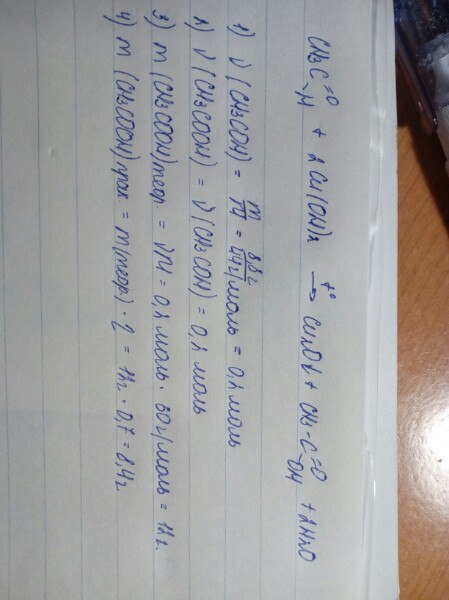 CH3C=O
\H + 2Cu(OH)2 t°→ Cu2O↓ + CH3-C=O
\OH + 2H2O
1) ν(CH3COH) = m/M = 8,8г/44г/моль = 0,2 моль
2) ν(CH3COOH) = ν(CH3COH) = 0,2 моль
3) m(CH3COOH)теор. = νM = 0,2 моль · 60г/моль = 12г.
4) m(CH3COOH)прак = m(теор) · η = 12г · 0,7 = 8,4г